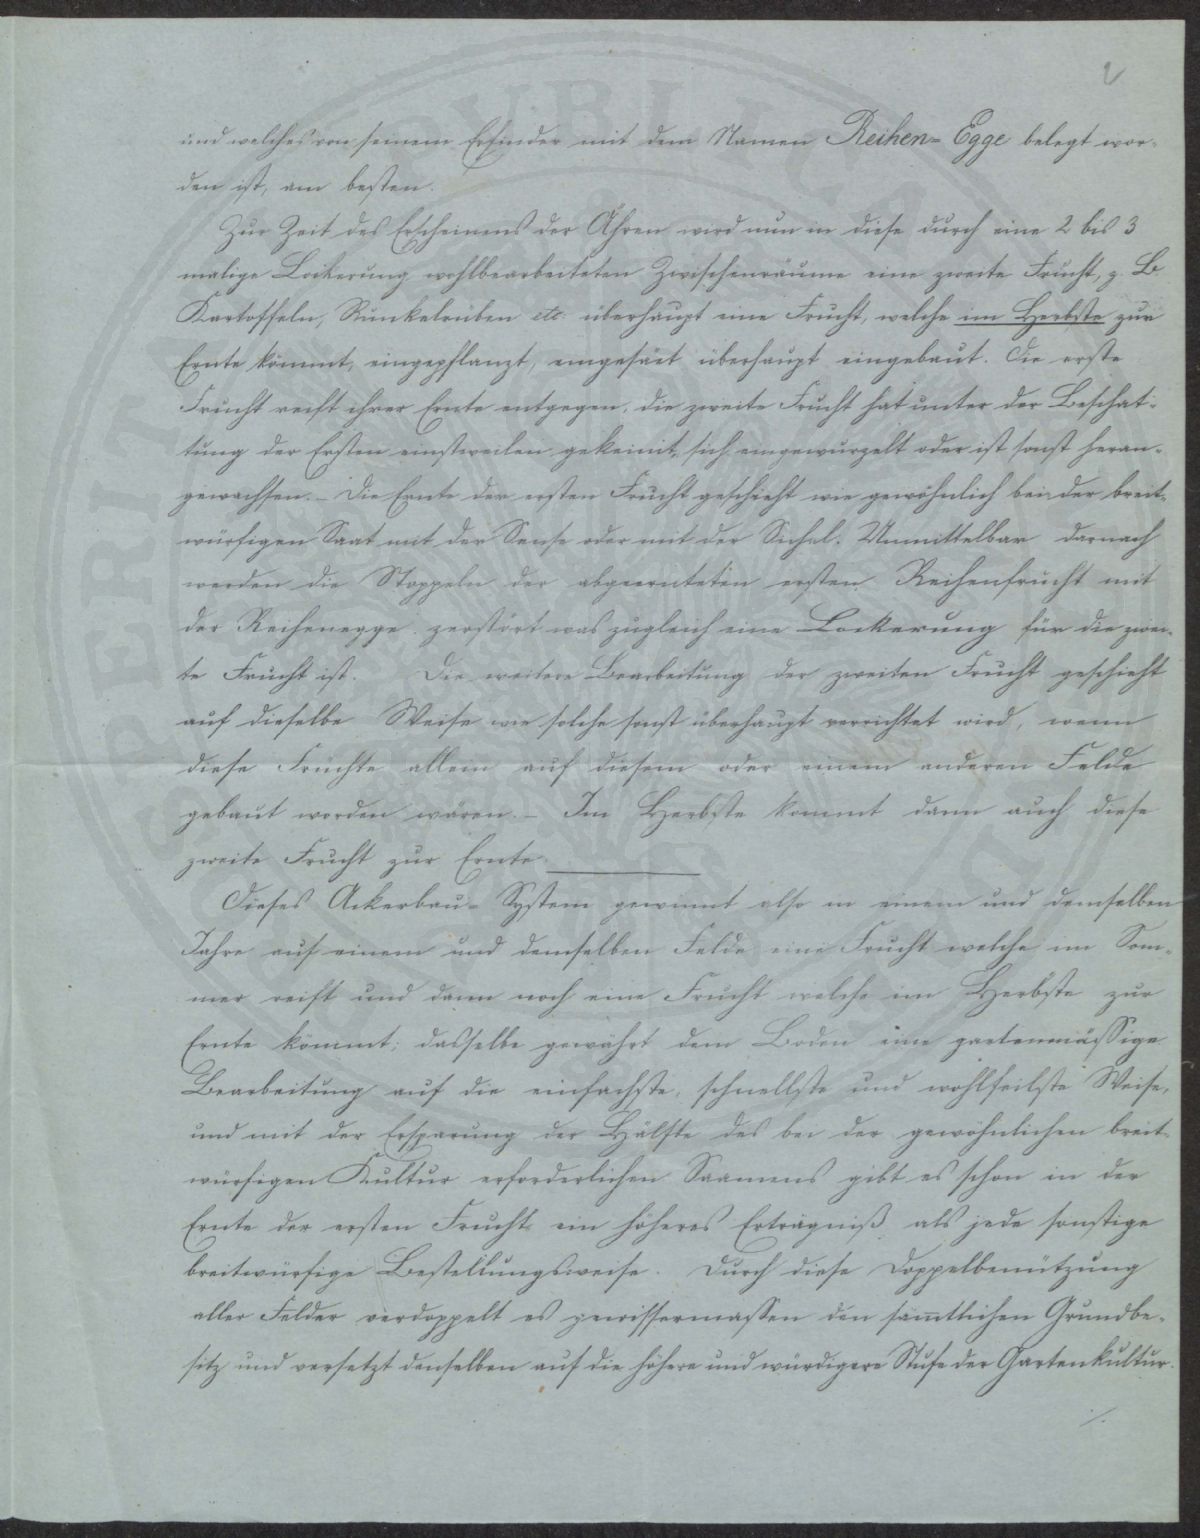 2
und welches von seinem Erfinder mit dem Namen Reihen= Egge belegt wor-
den ist, am besten.
Zur Zeit des Erscheinens der Ähren wird nun in diese durch eine 2 bis 3
malige Lockerung wohlbearbeiteten Zwischenräume eine zweite Frucht, z. B.
Kartoffeln, Runkelrüben etc. überhaupt eine Frucht, welche im Herbste zur
Ernte kömmt, eingepflanzt, eingesäet überhaupt eingebaut. Die erste
Frucht reift ihrer Ernte entgegen, die zweite Frucht hat unter der Beschat-
tung der Ersten einstweilen gekeimt, sich eingewurzelt oder ist sonst heran-
gewachsen. – Die Ernte der ersten Frucht geschieht wie gewöhnlich bei der breit-
würfigen Saat mit der Sense oder mit der Sichel. Unmittelbar darnach
werden die Stoppeln der abgeernteten ersten Reihenfrucht mit
der Reihenegge zerstört was zugleich eine Lockerung für die zwei-
te Frucht ist. Die weitere Bearbeitung der zweiten Frucht geschieht
auf dieselbe Weise wie solche sonst überhaupt verrichtet wird, wenn
diese Früchte allein auf diesem oder einem anderen Felde
gebaut worden wären. – Im Herbste kommt dann auch diese
zweite Frucht zur Ernte.
Dieses Ackerbau= System gewinnt also in einem und demselben
Jahre auf einem und demselben Felde eine Frucht welche im Som-
mer reift und dann noch eine Frucht welche im Herbste zur
Ernte kömmt; dasselbe gewährt dem Boden eine gartenmässige
Bearbeitung auf die einfachste, schnellste und wohlfeilste Weise,
und mit der Ersparung der Hälfte des bei der gewöhnlichen breit-
würfigen Kultur erforderlichen Saamens gibt es schon in der
Ernte der ersten Frucht ein höheres Erträgniß als jede sonstige
breitwürfige Bestellungsweise. Durch diese Doppelbenützung
aller Felder verdoppelt es gewissermassen den sämtlichen Grundbe-
sitz und versetzt denselben auf die höhere und würdigere Stufe der Gartenkultur.
./.